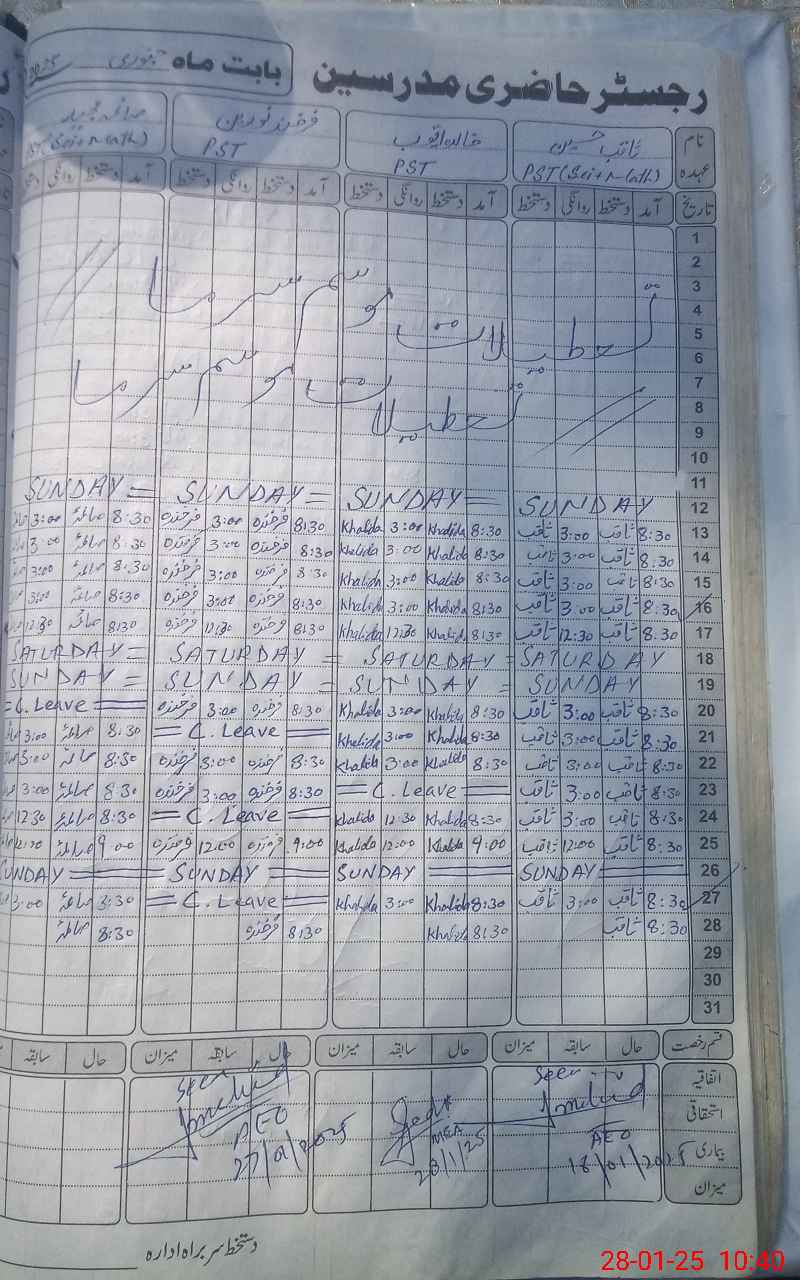 رجسٹر حاضری مدرسین بابت ماہ جنوری
نام ثاقب حسین خالدہ ایوب فرخندہ نورین صائمہ مجید
عہدہ PST (Sci+Math) PST PST PST (Sci+Math)
تاریخ آمد دستخط روانگی دستخط آمد دستخط روانگی دستخط آمد دستخط روانگی دستخط آمد دستخط روانگی
1
2
3
4
تعطیلات موسم سرما
5
6
7
8
تعطیلات موسم سرما
9
10
11
12 SUNDAY = SUNDAY = SUNDAY = SUNDAY
13 8:30 ثاقب 3:00 ثاقب 8:30 Khalida 3:00 Khalida 8:30 فرخندہ 3:00 فرخندہ 8:30 صائمہ 3:00
14 8:30 ثاقب 3:00 ثاقب 8:30 Khalida 3:00 Khalida 8:30 فرخندہ 3:00 فرخندہ 8:30 صائمہ 3:00
15 8:30 ثاقب 3:00 ثاقب 8:30 Khalida 3:00 Khalida 8:30 فرخندہ 3:00 فرخندہ 8:30 صائمہ 3:00
16 8:30 ثاقب 3:00 ثاقب 8:30 Khalida 3:00 Khalida 8:30 فرخندہ 3:00 فرخندہ 8:30 صائمہ 3:00
17 8:30 ثاقب 12:30 ثاقب 8:30 Khalida 12:30 Khalida 8:30 فرخندہ 12:30 فرخندہ 8:30 صائمہ 12:30
18 SATURDAY = SATURDAY = SATURDAY = SATURDAY
19 SUNDAY = SUNDAY = SUNDAY = SUNDAY
20 8:30 ثاقب 3:00 ثاقب 8:30 Khalida 3:00 Khalida 8:30 فرخندہ 3:00 فرخندہ = C. Leave =
21 8:30 ثاقب 3:00 ثاقب 8:30 Khalida 3:00 Khalida = C. Leave = 8:30 صائمہ 3:00
22 8:30 ثاقب 3:00 ثاقب 8:30 Khalida 3:00 Khalida 8:30 فرخندہ 3:00 فرخندہ 8:30 صائمہ 3:00
23 8:30 ثاقب 3:00 ثاقب = C. Leave = 8:30 فرخندہ 3:00 فرخندہ 8:30 صائمہ 3:00
24 8:30 ثاقب 3:00 ثاقب 8:30 Khalida 12:30 Khalida = C. Leave = 8:30 صائمہ 12:30
25 8:30 ثاقب 12:00 ثاقب 9:00 Khalida 12:00 Khalida 9:00 فرخندہ 12:00 فرخندہ 9:00 صائمہ
26 SUNDAY = SUNDAY = SUNDAY = SUNDAY
27 8:30 ثاقب 3:00 ثاقب 8:30 Khalida 3:00 Khalida = C. Leave = 3:30 صائمہ 3:00
28 8:30 ثاقب 8:30 Khalida 8:30 فرخندہ 8:30 صائمہ
29
30
31
قسم رخصت حال سابقہ میزان حال سابقہ میزان حال سابقہ میزان حال سابقہ
اتفاقیہ
استحقاقی
بیماری
میزان
Seen
AEO
18/01/2025
MEA
28/1/25
Seen
AEO
27/01/2025
دستخط سربراہ ادارہ
28-01-25 10:40